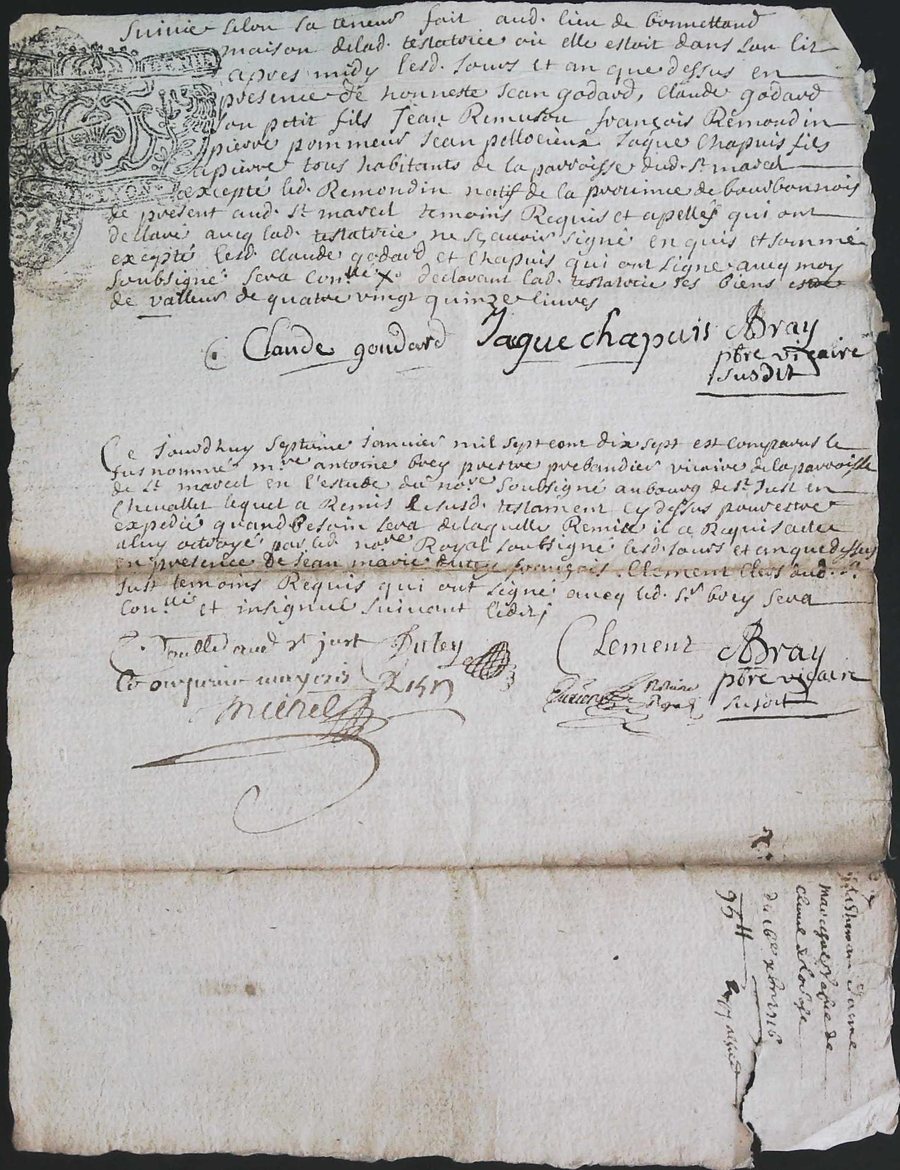 suivie selon sa teneur fait aud. lieu de bonnettand
maison delad. testatrice où elle estoit dans son lit
apres midy lesd. Jours et an que dessus en
presence de honneste Jean godard, Claude godard
son petit fils Jean Remuson françois Remondin
pierre pommeur Jean pellocieux Jaque Chapuis fils
a pierre tous habitants de la parroisse dud. st marcel
excepté led. Remondin natif de la province de bourbonnois
de present aud. st marcel temoins Requis et apellés qui ont
declaré avec lad. testatrice ne sçavoir signé enquis et sommé
excepté lesd. Claude godard et Chapuis qui ont signé avec moy
soubsigné sera Conllé X. declarant lad. testatrice ses biens estre
de valleur de quatre vingt quinze livres
Claude goudard Jaque chapuis ABray
pbre vicaire
susdit
Ce Jourdhuy septiême Janvier mil sept cent dix sept est Comparus le
susnommé mre antoine brey prestre prebandier vicaire de la parroisse
de st marcel en l'estude du nore soubsigné au bourg de st Just en
Chevallet lequel a Remis le susd. testament cy dessus pour estre
expedié quand besoin sera de laquelle Remise il a Requis acte
a luy octroyé par led. nore Royal soubsigné lesd. Jours et an que dessus
en presence de Jean marie françois Clement Clers aud. st
Just temoins Requis qui ont signé avec led. sr brey sera
Conllé et insignué suivant l'edit
aud st just Duley Clement ABray
pbre vicaire
susdit
Michel
Notaire
Royal
Jeanne
de
du 16e xbre 1716
95 ₶